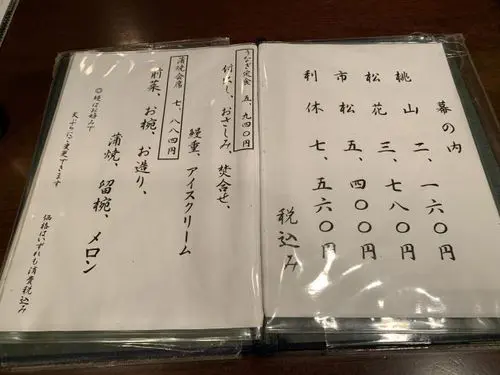 幕の内
桃山 二、一六〇円
松花 三、七八〇円
市松 五、四〇〇円
利休 七、五六〇円
税込み
うなぎ定食 五、九四〇円
付だし、おさしみ、焚合せ、
鰻重、アイスクリーム
蒲焼会席 七、八八四円
前菜、お椀、お造り、
蒲焼、留椀、メロン
◎鰻はお好みで
天ぷらに変更できます
価格はいずれも消費税込み